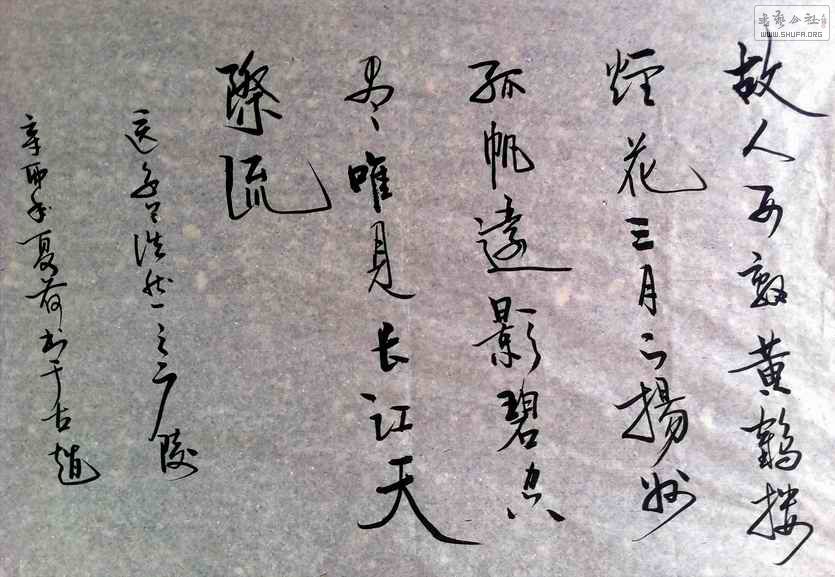 书艺公社
WWW.SHUFA.ORG
故人西辭黄鶴楼
煙花三月下揚州
孤帆遠影碧空
尽唯見长江天
際流
送孟浩然之广陵
辛年夏荷书于古趙